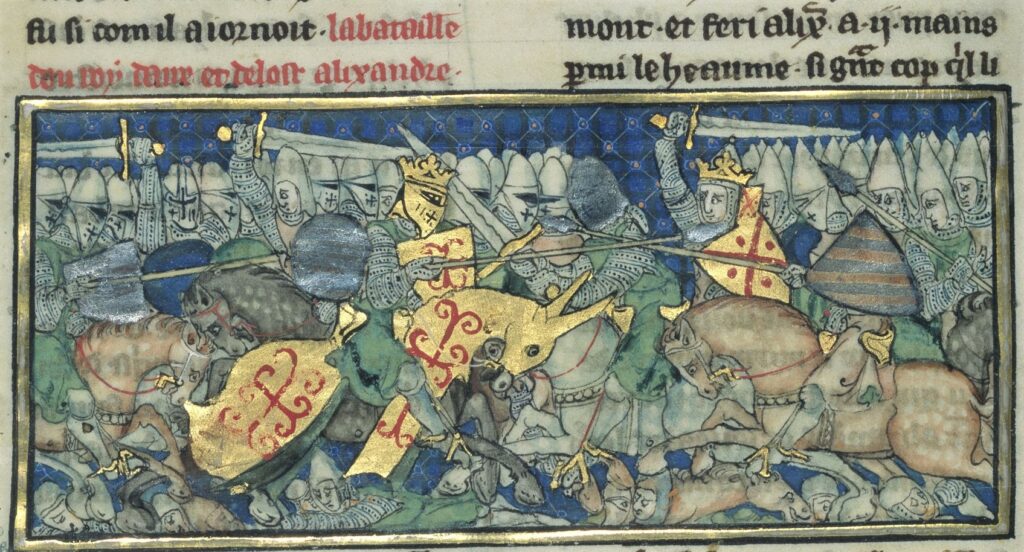 fu si com il aiornoit · la bataille
dou roy et de lost alixandre ·
mont · et feri alix̄ · a · ij · mains
ꝑmi le heaume · si gͣnt cop qͥl li